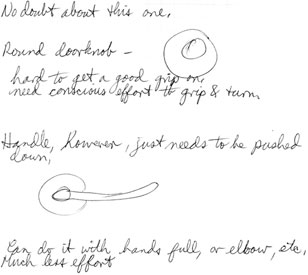 No doubt about this one,
Round doorknob -
hard to get a good grip on,
need conscious effort to grip & turn.
Handle, however, just needs to be pushed
down,
Can do it with hands full, or elbow, etc,
Much less effort